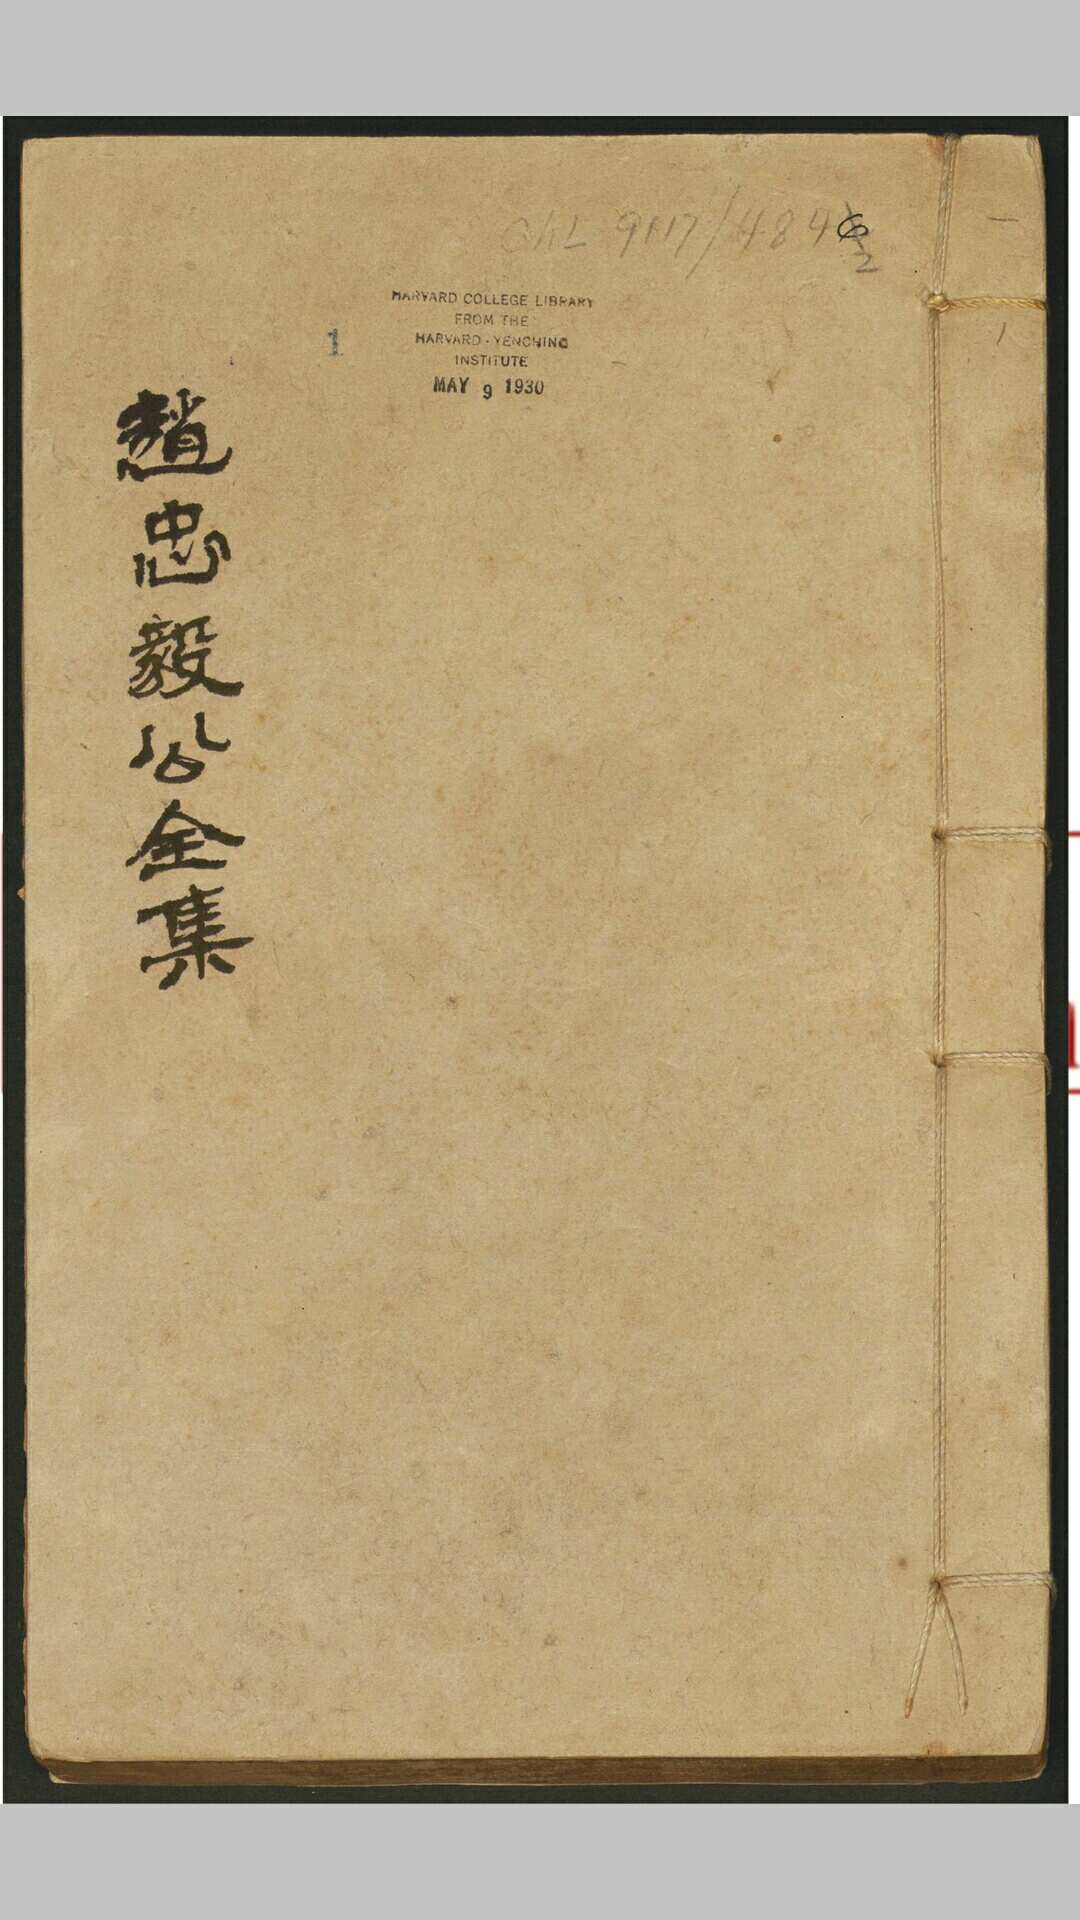 趙忠毅公全集
HARVARD COLLEGE LIBRARY
FROM THE
HARVARD-YENCHING
INSTITUTE
MAY 9 1930
1